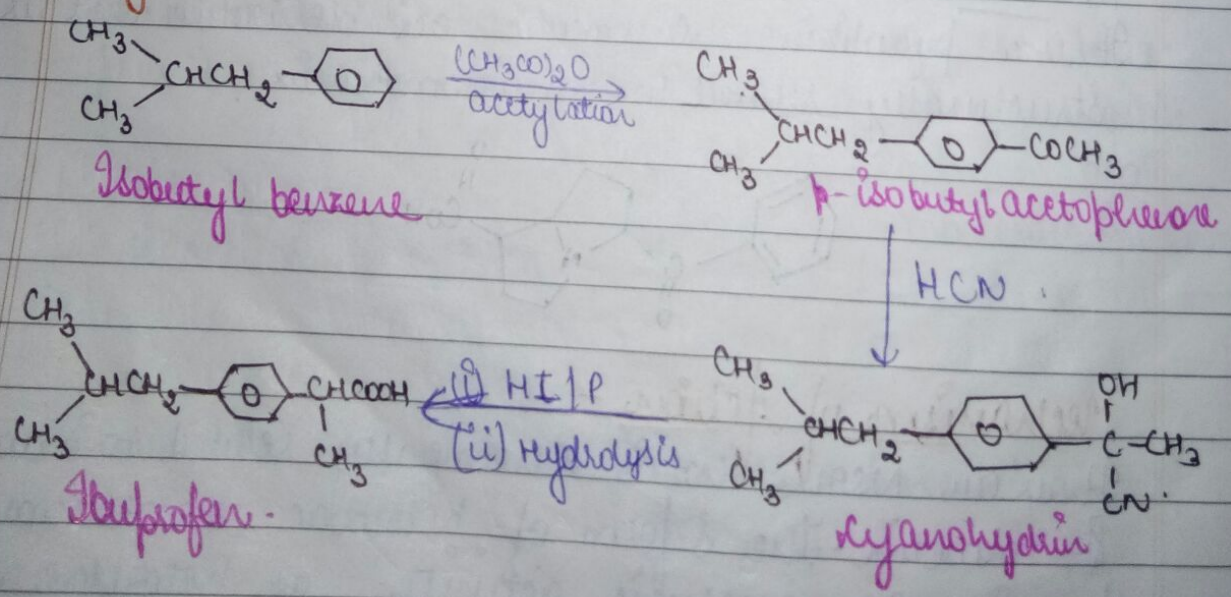 CH3
CHCH2
CH3
(CH3CO)2O
acetylation
CH3
CHCH2
CH3
COCH3
Isobutyl benzene
p-isobutylacetophenone
HCN
CH3
CHCH2
CH3
CHCOOH
CH3
(i) HI/P
(ii) Hydrolysis
CH3
CHCH2
CH3
OH
C-CH3
CN
Ibuprofen.
Cyanohydrin